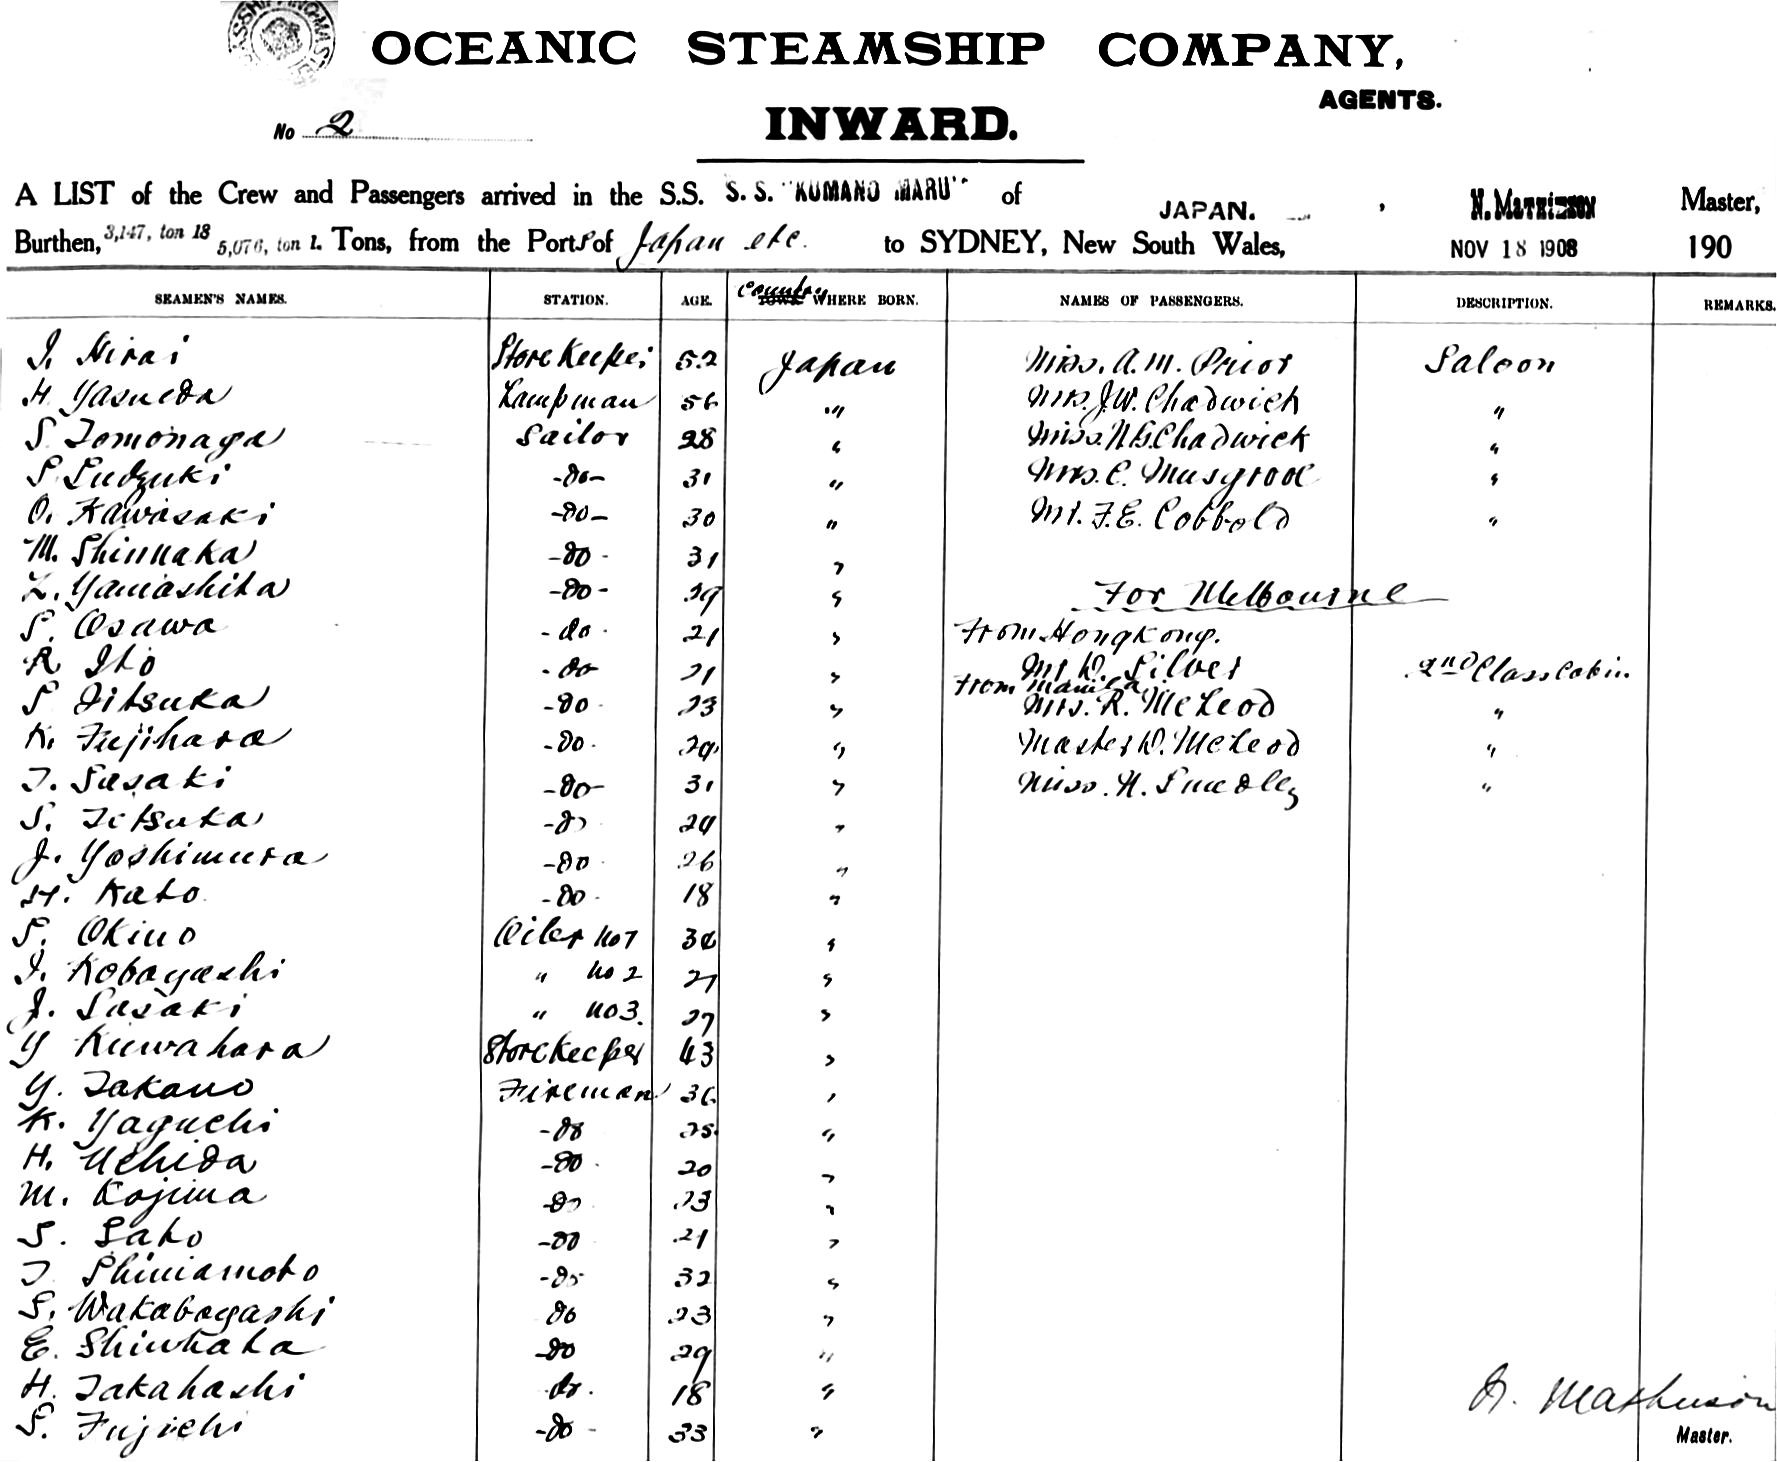 OCEANIC STEAMSHIP COMPANY,
AGENTS.
No 2
INWARD.
A LIST of the Crew and Passengers arrived in the S.S. S. S. "KUMANO MARU" of JAPAN. Master,
Burthen, 3,147, ton 18 5,076, ton 1. Tons, from the Ports of Japan etc. to SYDNEY, New South Wales, NOV 18 1908 190
SEAMEN'S NAMES. STATION. AGE. Country WHERE BORN. NAMES OF PASSENGERS. DESCRIPTION. REMARKS.
Hirai Storekeeper 52 Japan Miss. A. M. Prior Saloon
H. Yasueda Lampman 56 " Mrs. J. W. Chadwick "
S. Tomonaga Sailor 28 " Miss. Chadwick "
S. Sudzuki -do- 31 " Mrs. C. Musgrove "
O. Kawasaki -do- 30 " Mr. F. E. Cobbold "
M. Shinnaka -do- 31 "
Z. Yamashita -do- 29 " For Melbourne
S. Osawa -do- 21 " From Hongkong.
R. Ito -do- 21 " Mr D. Silver 2nd Class Cabin.
From Manila
S. Iitsuka -do- 23 " Mrs. R. McLeod "
K. Fujihara -do- 29 " Master D. McLeod "
T. Sasaki -do- 31 " Miss. H. Smedley "
S. Tetsuka -do- 29 "
J. Yoshimura -do- 26 "
H. Kato -do- 18 "
S. Okino Oiler no 1 "
I. Kobayashi " no 2 27 "
J. Sasaki " no 3. 27 "
Y Kuwahara Storekeeper 43 "
Y. Takano Fireman 36 "
K. Yaguchi -do 25 "
H. Uchida -do- 20 "
M. Kojima -do 23 "
S. Sato -do 21 "
T Shimamoto -do- 32 "
S. Wakabayashi do 23 "
E. -do 29 "
H. Takahashi do. 18 "
S. Fujichi -do- 33 "
Master.